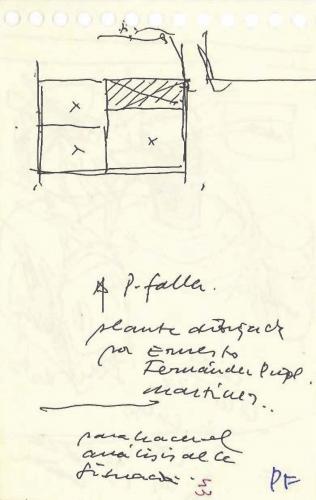 X
X
Y
P. faller.
planta dibujada
por Ernesto
Fernández
Martínez..
para hacer el
análisis de la
situación.
PF